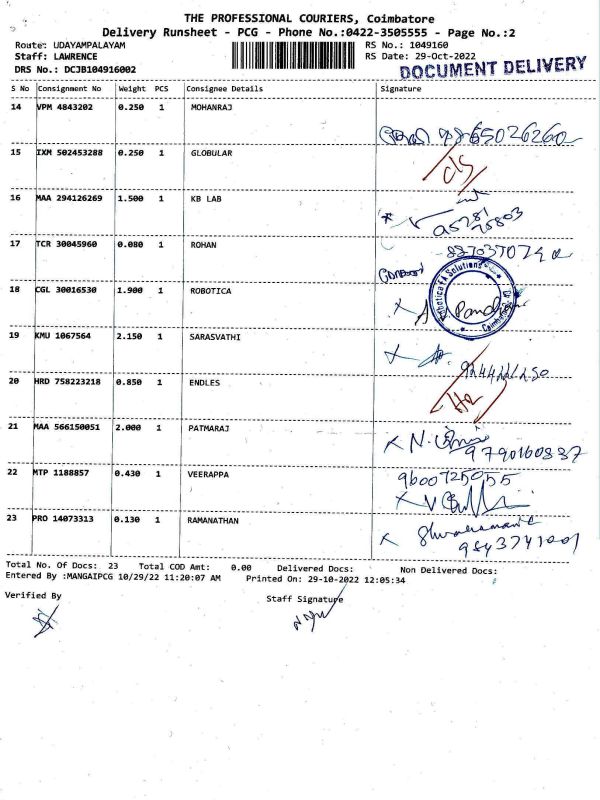 THE PROFESSIONAL COURIERS, Coimbatore
Delivery Runsheet - PCG - Phone No.:0422-3505555 - Page No.:2
Route: UDAYAMPALAYAM RS No.: 1049160
Staff: LAWRENCE RS Date: 29-Oct-2022
DRS No.: DCJB104916002 DOCUMENT DELIVERY
S No Consignment No Weight PCS Consignee Details Signature
14 VPM 4843202 0.250 1 MOHANRAJ
9865026260
15 IXM 502453288 0.250 1 GLOBULAR
16 MAA 294126269 1.500 1 KB LAB
95281
75803
17 TCR 30045960 0.080 1 ROHAN
18 CGL 30016530 1.900 1 ROBOTICA
19 KMU 1067564 2.150 1 SARASVATHI
20 HRD 758223218 0.850 1 ENDLES
21 MAA 566150051 2.000 1 PATMARAJ
9790160837
22 MTP 1188857 0.430 1 VEERAPPA
9600725055
23 PRO 14073313 0.130 1 RAMANATHAN
9843741001
Total No. Of Docs: 23 Total COD Amt: 0.00 Delivered Docs: Non Delivered Docs:
Entered By :MANGAIPCG 10/29/22 11:20:07 AM Printed On: 29-10-2022 12:05:34
Verified By Staff Signature